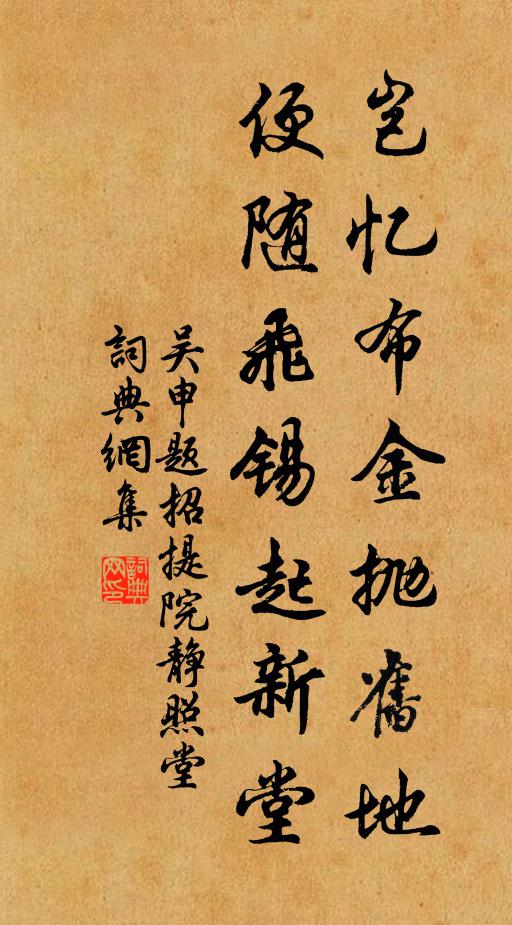 岂忆布金抛舊地
便随飛锡起新堂
吴申题招提院静照堂
詞典網集
詞典网印